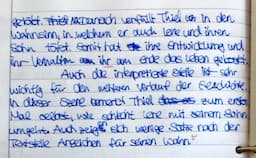 gelöst. Danach verfällt Thiel in den
Wahnsinn, in welchem er auch Lene und ihren
Sohn tötet. Somit hat ihre Entwicklung und
ihr Verhalten ihr am Ende das Leben gekostet.
Auch die interpretierte Stelle ist sehr
wichtig für den weiteren Verlauf der Geschichte.
In dieser Szene bemerkt Thiel zum ersten
Mal selbst, wie schlecht Lene mit seinem Sohn
umgeht. Auch zeigt sich wenige Sätze nach der
Textstelle Anzeichen für seinen Wahn